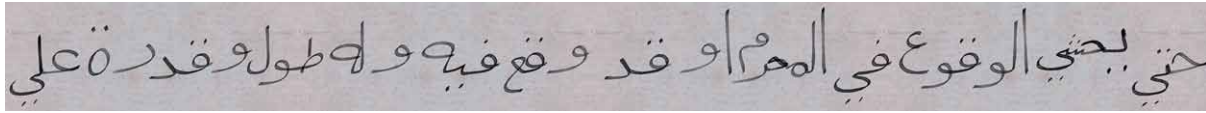 حتي يخشي الوقوع في المحرم او قد وقع فيه وله طول وقدرة علي